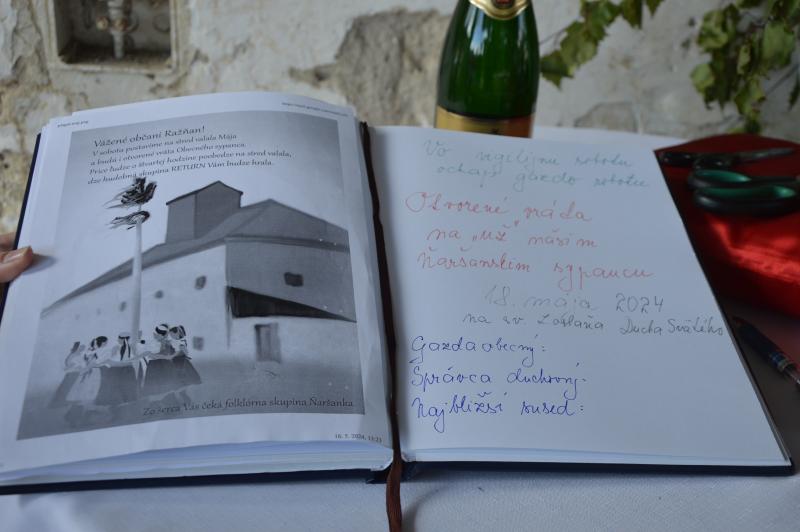 Vážené občani Ražňan!
V sobota postavime na stred valala Mája
a budú i otvorené vráta Obecného sypanca.
Príce ľudze o štvartej hodzine poobedze na stred valala,
dze hudobná skupina RETURN Vám budze hrala.
Zo šerca Vás čeká folklórna skupina Ňaršanka
16. 5. 2024, 13:23
Vo vigilijnu sobotu
ochaj gazdo robotu
Otvorené vráta
na "už" nášim
Ňaršanskim sypancu
18. mája 2024
na sv. Zoslaňa Ducha Svätého
Gazda obecný:
Správca duchovný:
Najbližší sused: